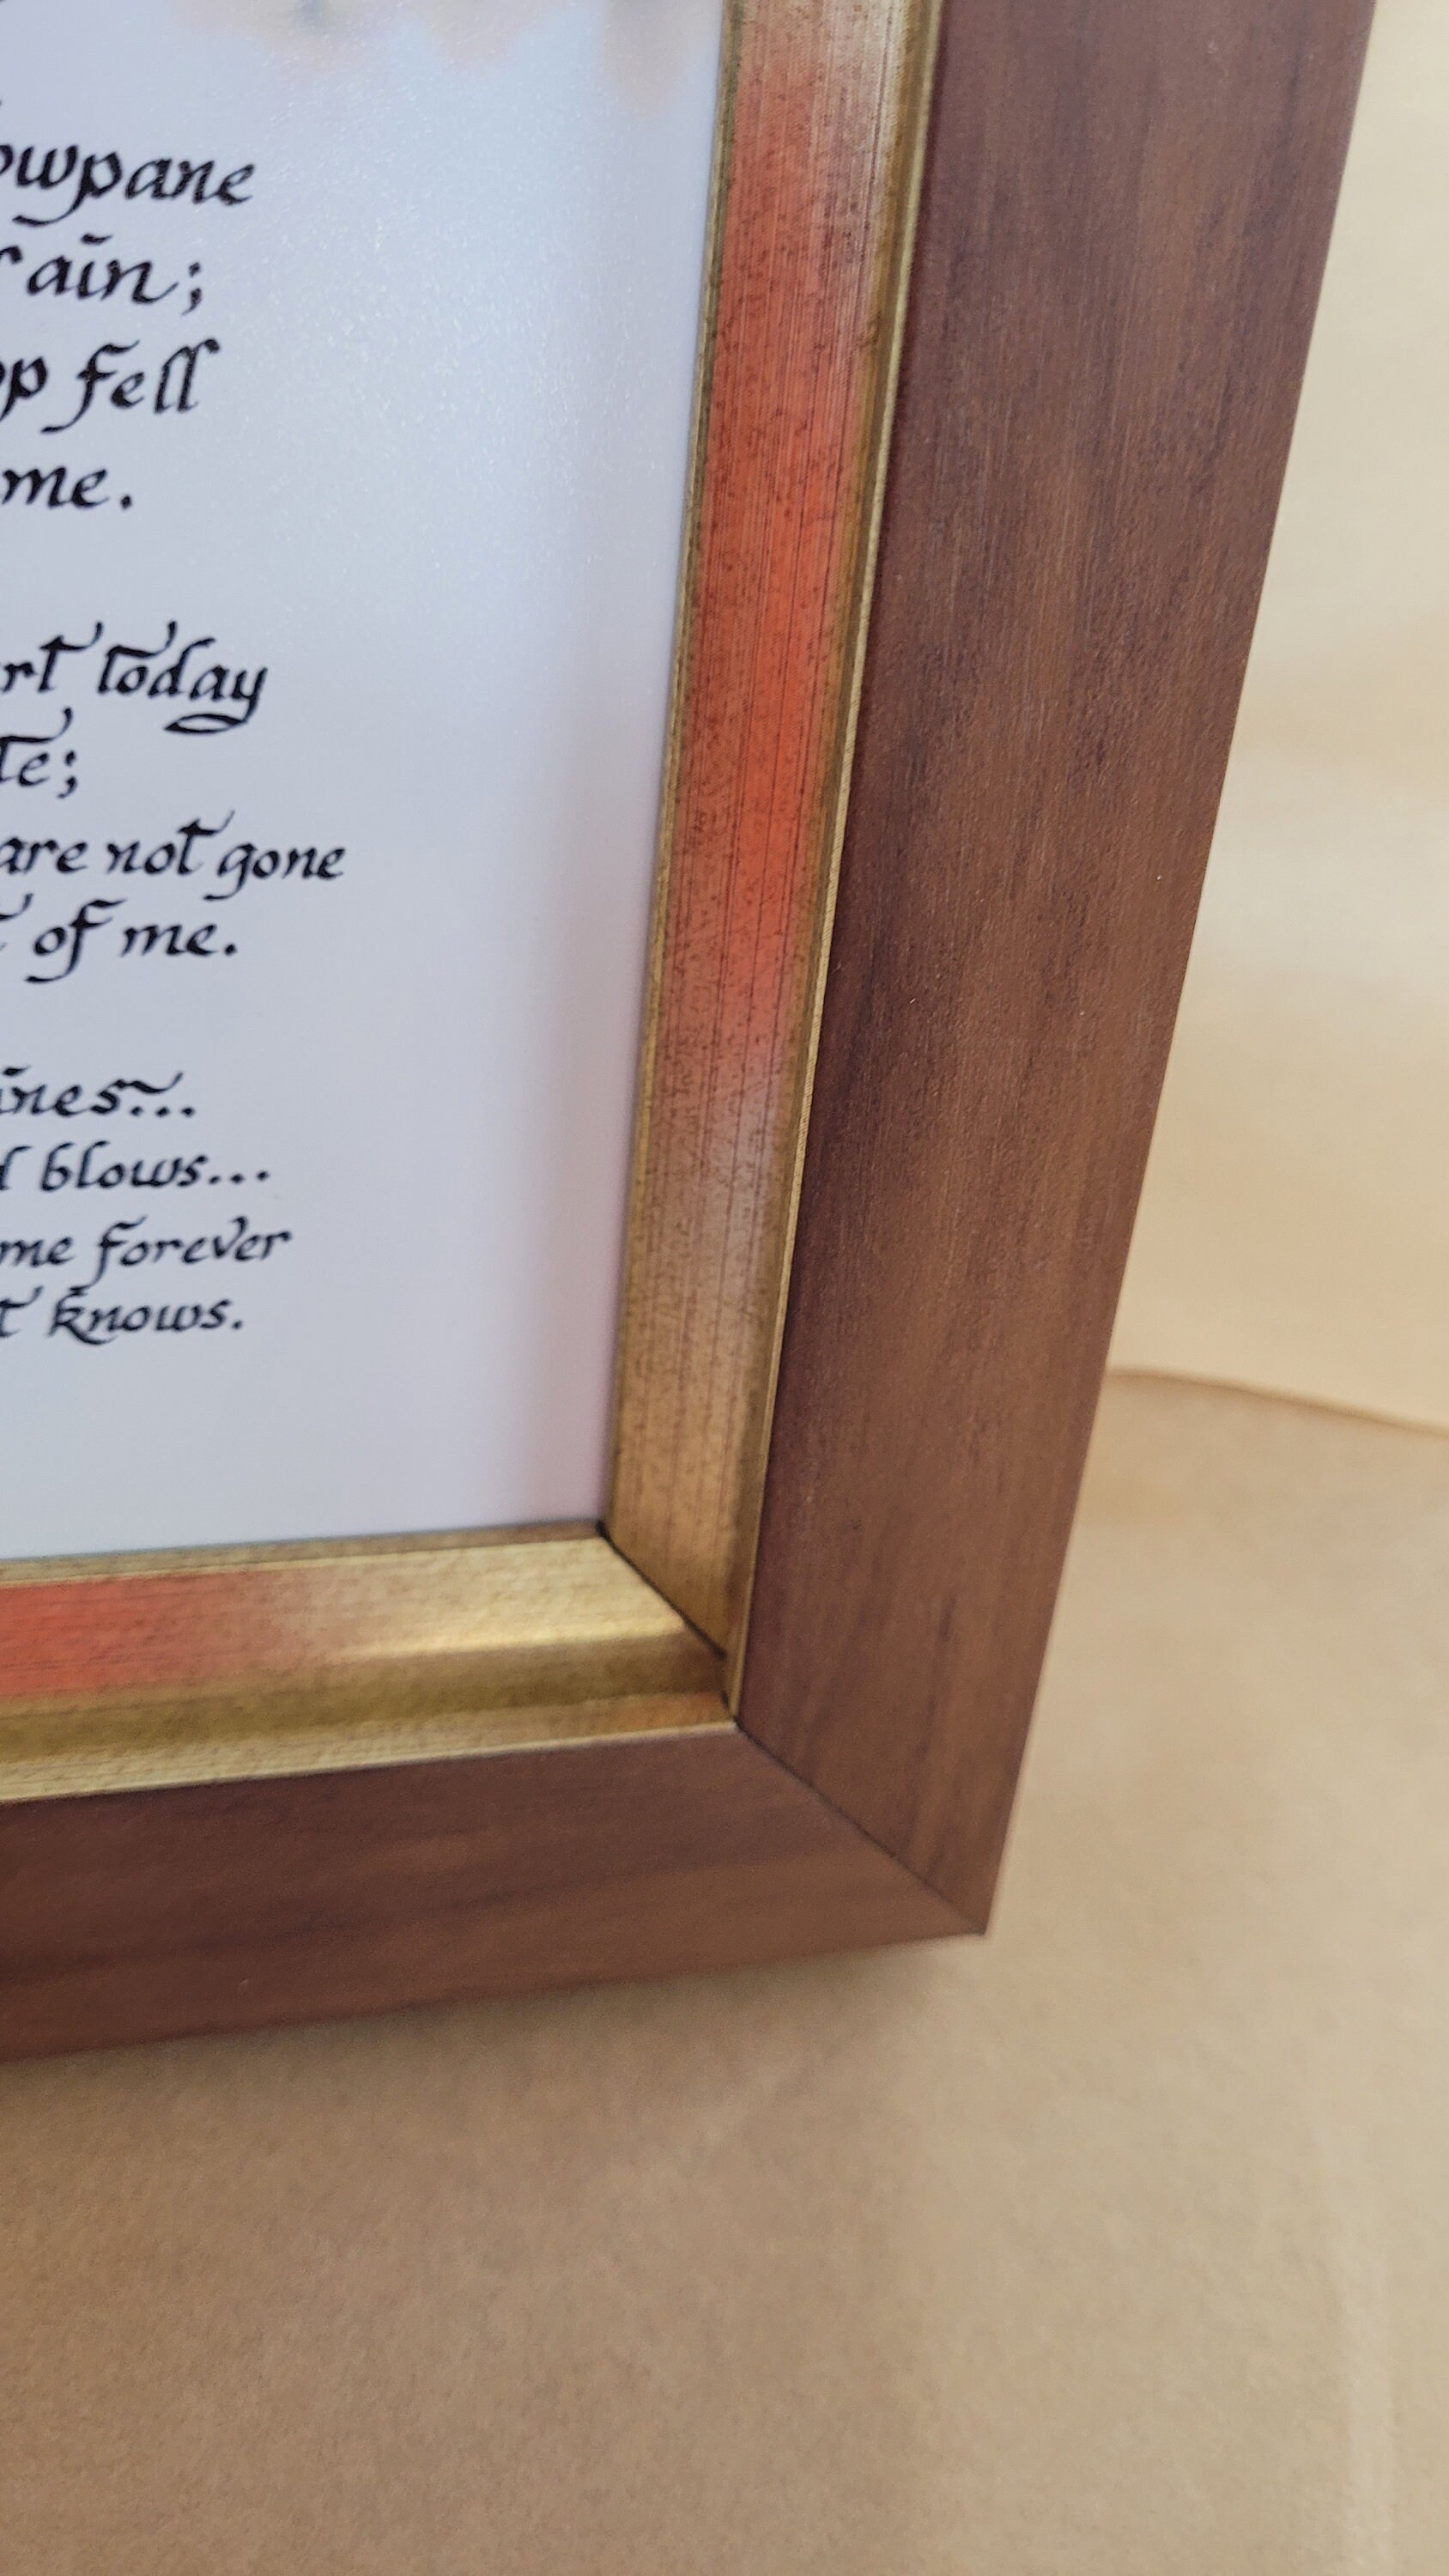 owpane
rain;
op fell
me.
rt today
te;
are not gone
t of me.
ines...
d blows...
me forever
t knows.